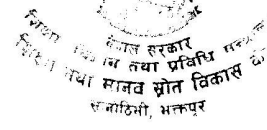 नेपाल सरकार
शिक्षा विज्ञान तथा प्रविधि मन्त्रालय
शिक्षा तथा मानव स्रोत विकास केन्द्र
सानोठिमी, भक्तपुर